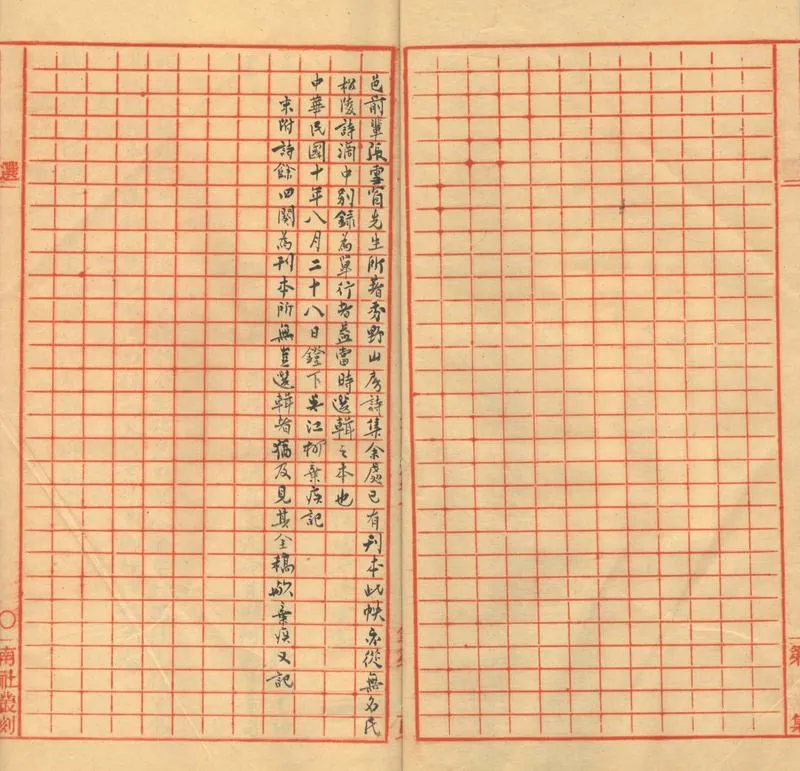 第　集
邑前輩張雪窗先生所著秀野山房詩集余處已有刊本此帙亦從無名氏
松陵詩滴中別錄為單行者蓋當時選輯之本也
中華民國十年八月二十八日鐙下吳江柳棄疾記
末附詩餘四闋為刊本所無豈選輯者猶及見其全稿歟棄疾又記
選
〇南社叢刻